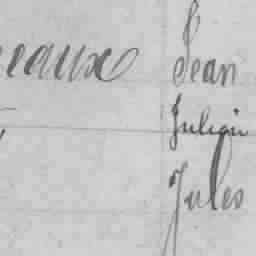 eaux Jean
Julien
Jules